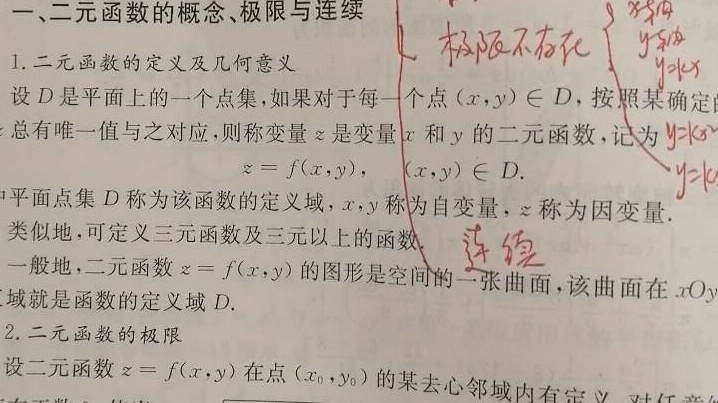 一、二元函数的概念、极限与连续
极限不存在
x轴
y轴
y=kx
1.二元函数的定义及几何意义
设 D 是平面上的一个点集,如果对于每一个点 (x,y) ∈ D, 按照某确定的
总有唯一值与之对应,则称变量 z 是变量 x 和 y 的二元函数,记为
y=kx²
z = f(x,y), (x,y) ∈ D.
中平面点集 D 称为该函数的定义域, x,y 称为自变量, z 称为因变量.
类似地,可定义三元函数及三元以上的函数.
连续
一般地,二元函数 z = f(x,y) 的图形是空间的一张曲面,该曲面在 xOy
区域就是函数的定义域 D.
2.二元函数的极限
设二元函数 z = f(x,y) 在点 (x₀,y₀) 的某去心邻域内有定义